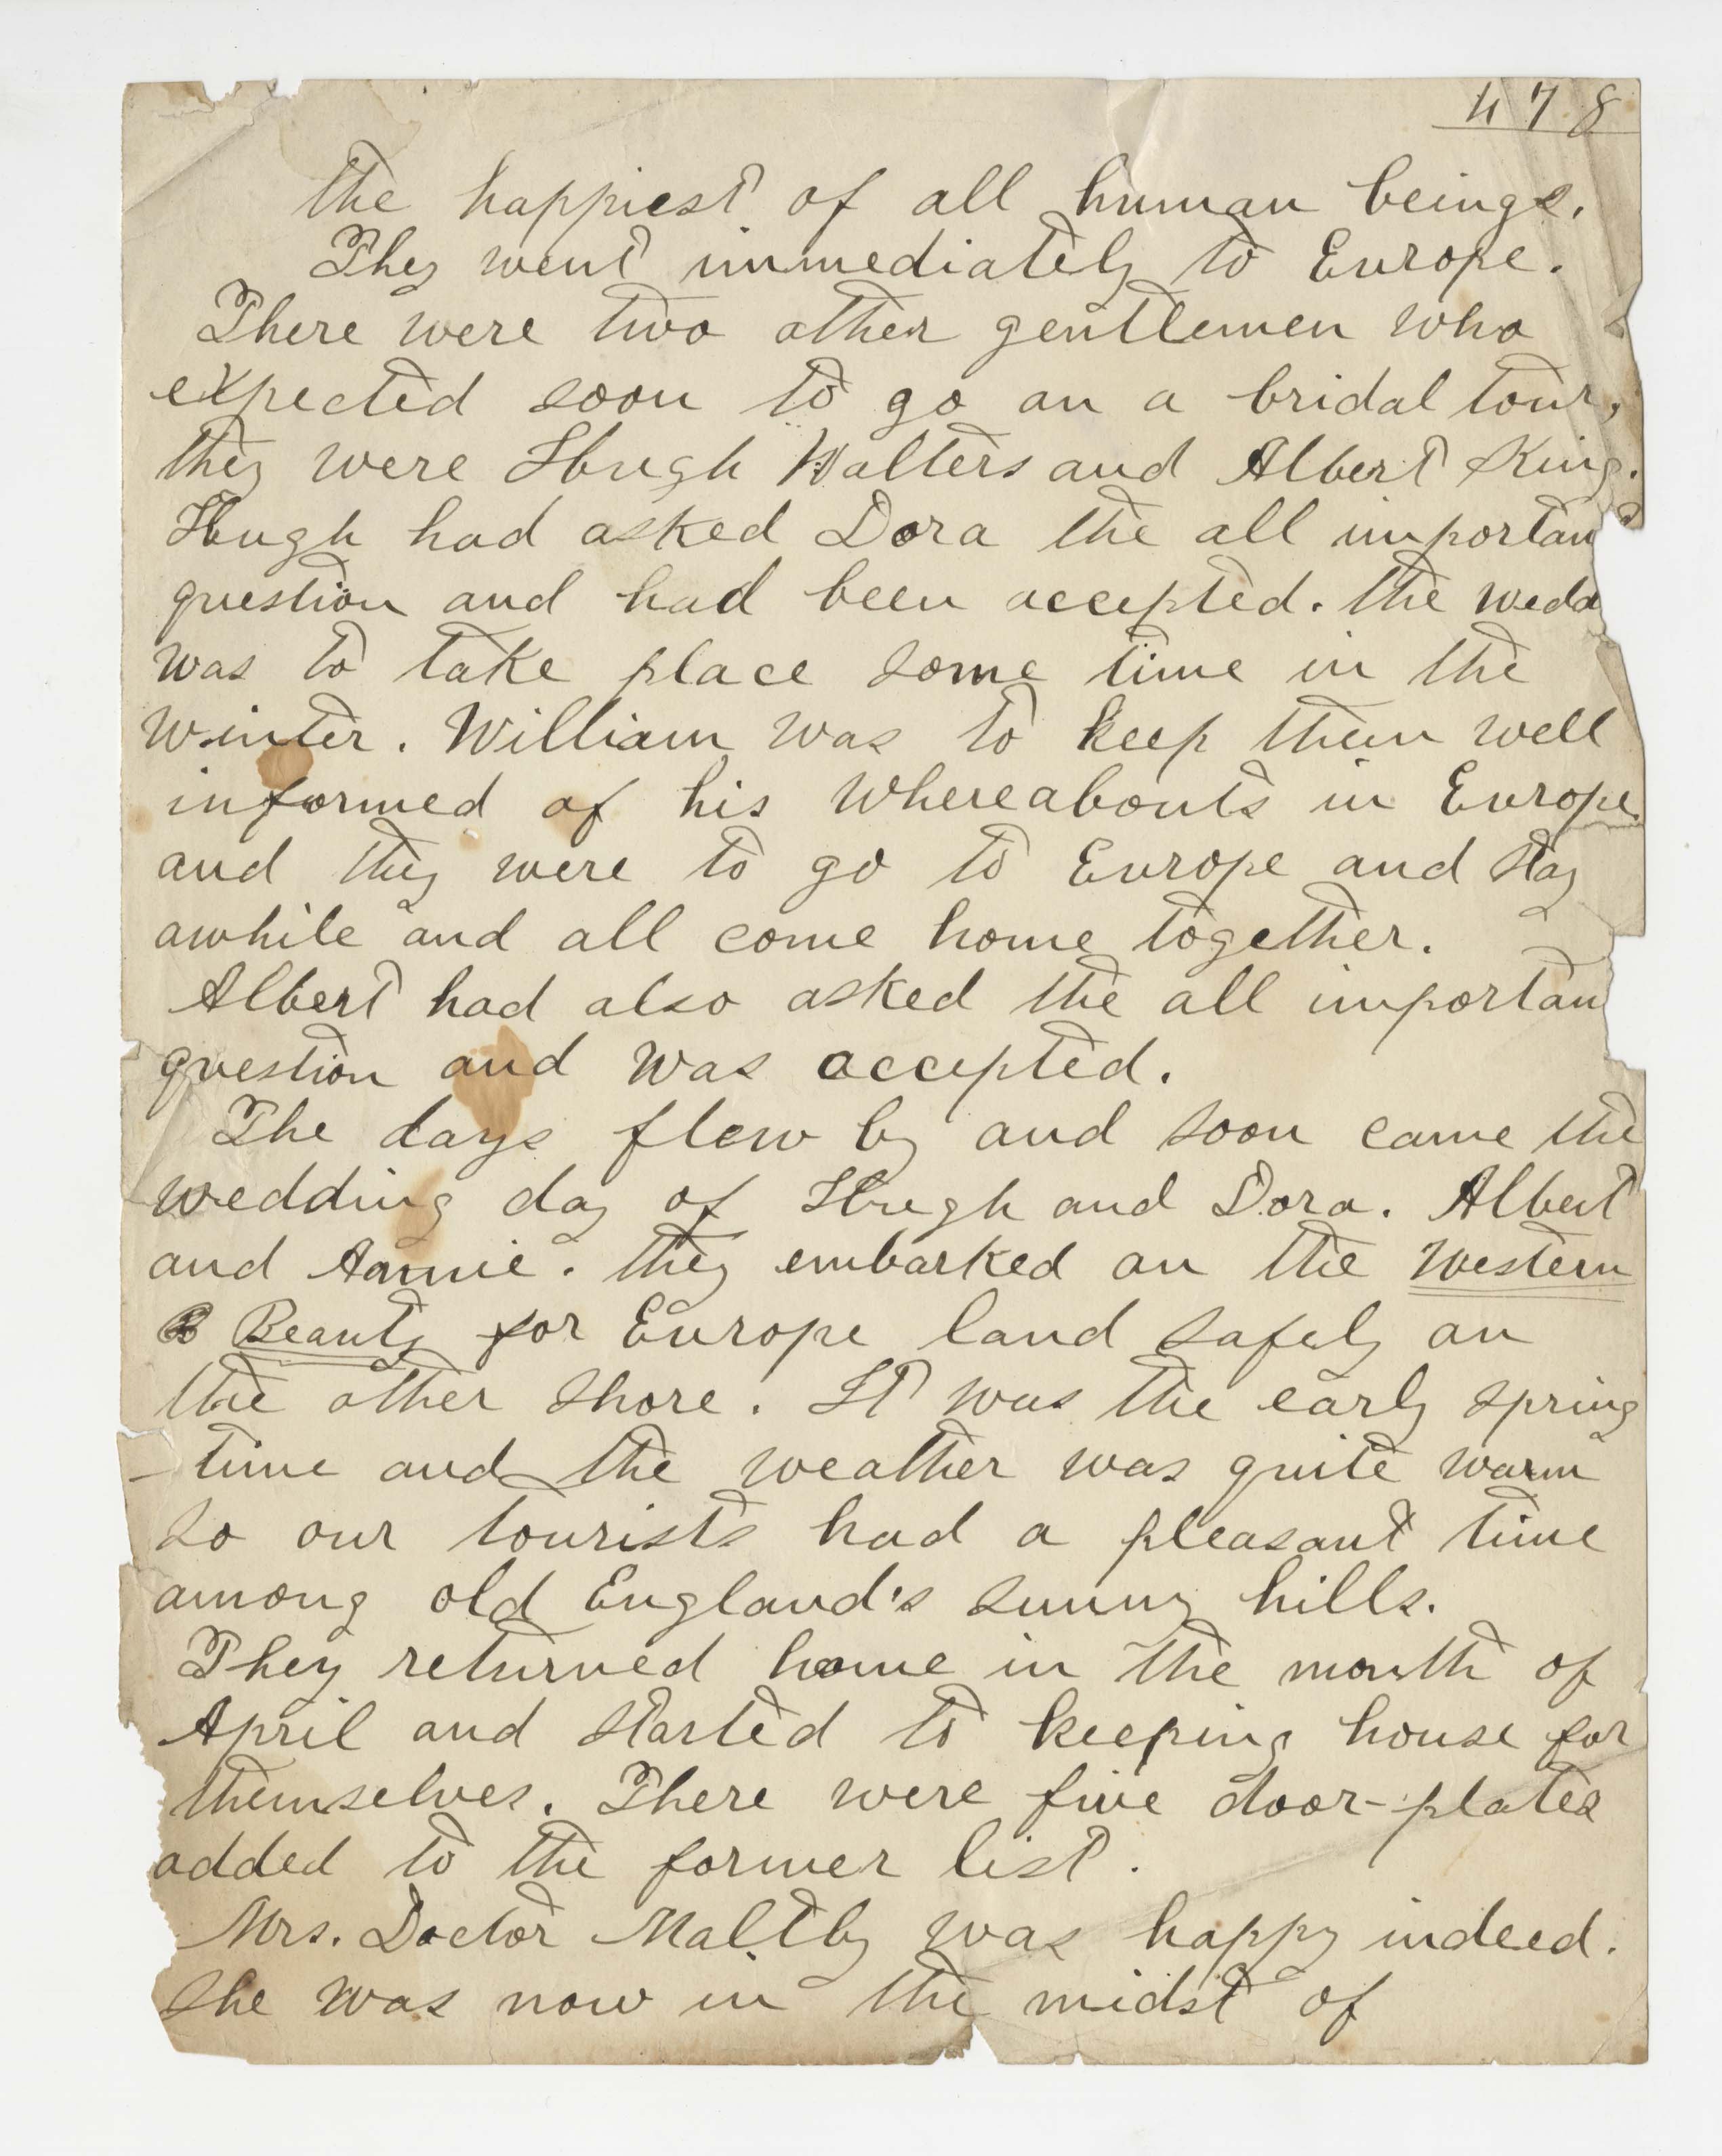 478
the happiest of all human beings.
They went immediately to Europe.
There were two other gentlemen who
expected soon to go on a bridal tour,
they were Hugh Walters and Albert King.
Hugh had asked Dora the all important
question and had been accepted. the wedd
was to take place some time in the
winter. William was to keep them well
informed of his whereabouts in Europe.
and they were to go to Europe and stay
awhile and all come home together.
Albert had also asked the all importan
question and was accepted.
The days flew by and soon came the
wedding day of Hugh and Dora. Albert
and Annie. they embarked on the Western
B Beauty for Europe land safely on
the other shore. It was the early spring
-time and the weather was quite warm
so our tourists had a pleasant time
among old England's sunny hills.
They returned home in the month of
April and started to keeping house for
themselves. There were five door-plates
added to the former list.
Mrs. Doctor Maltby was happy indeed.
She was now in the midst of